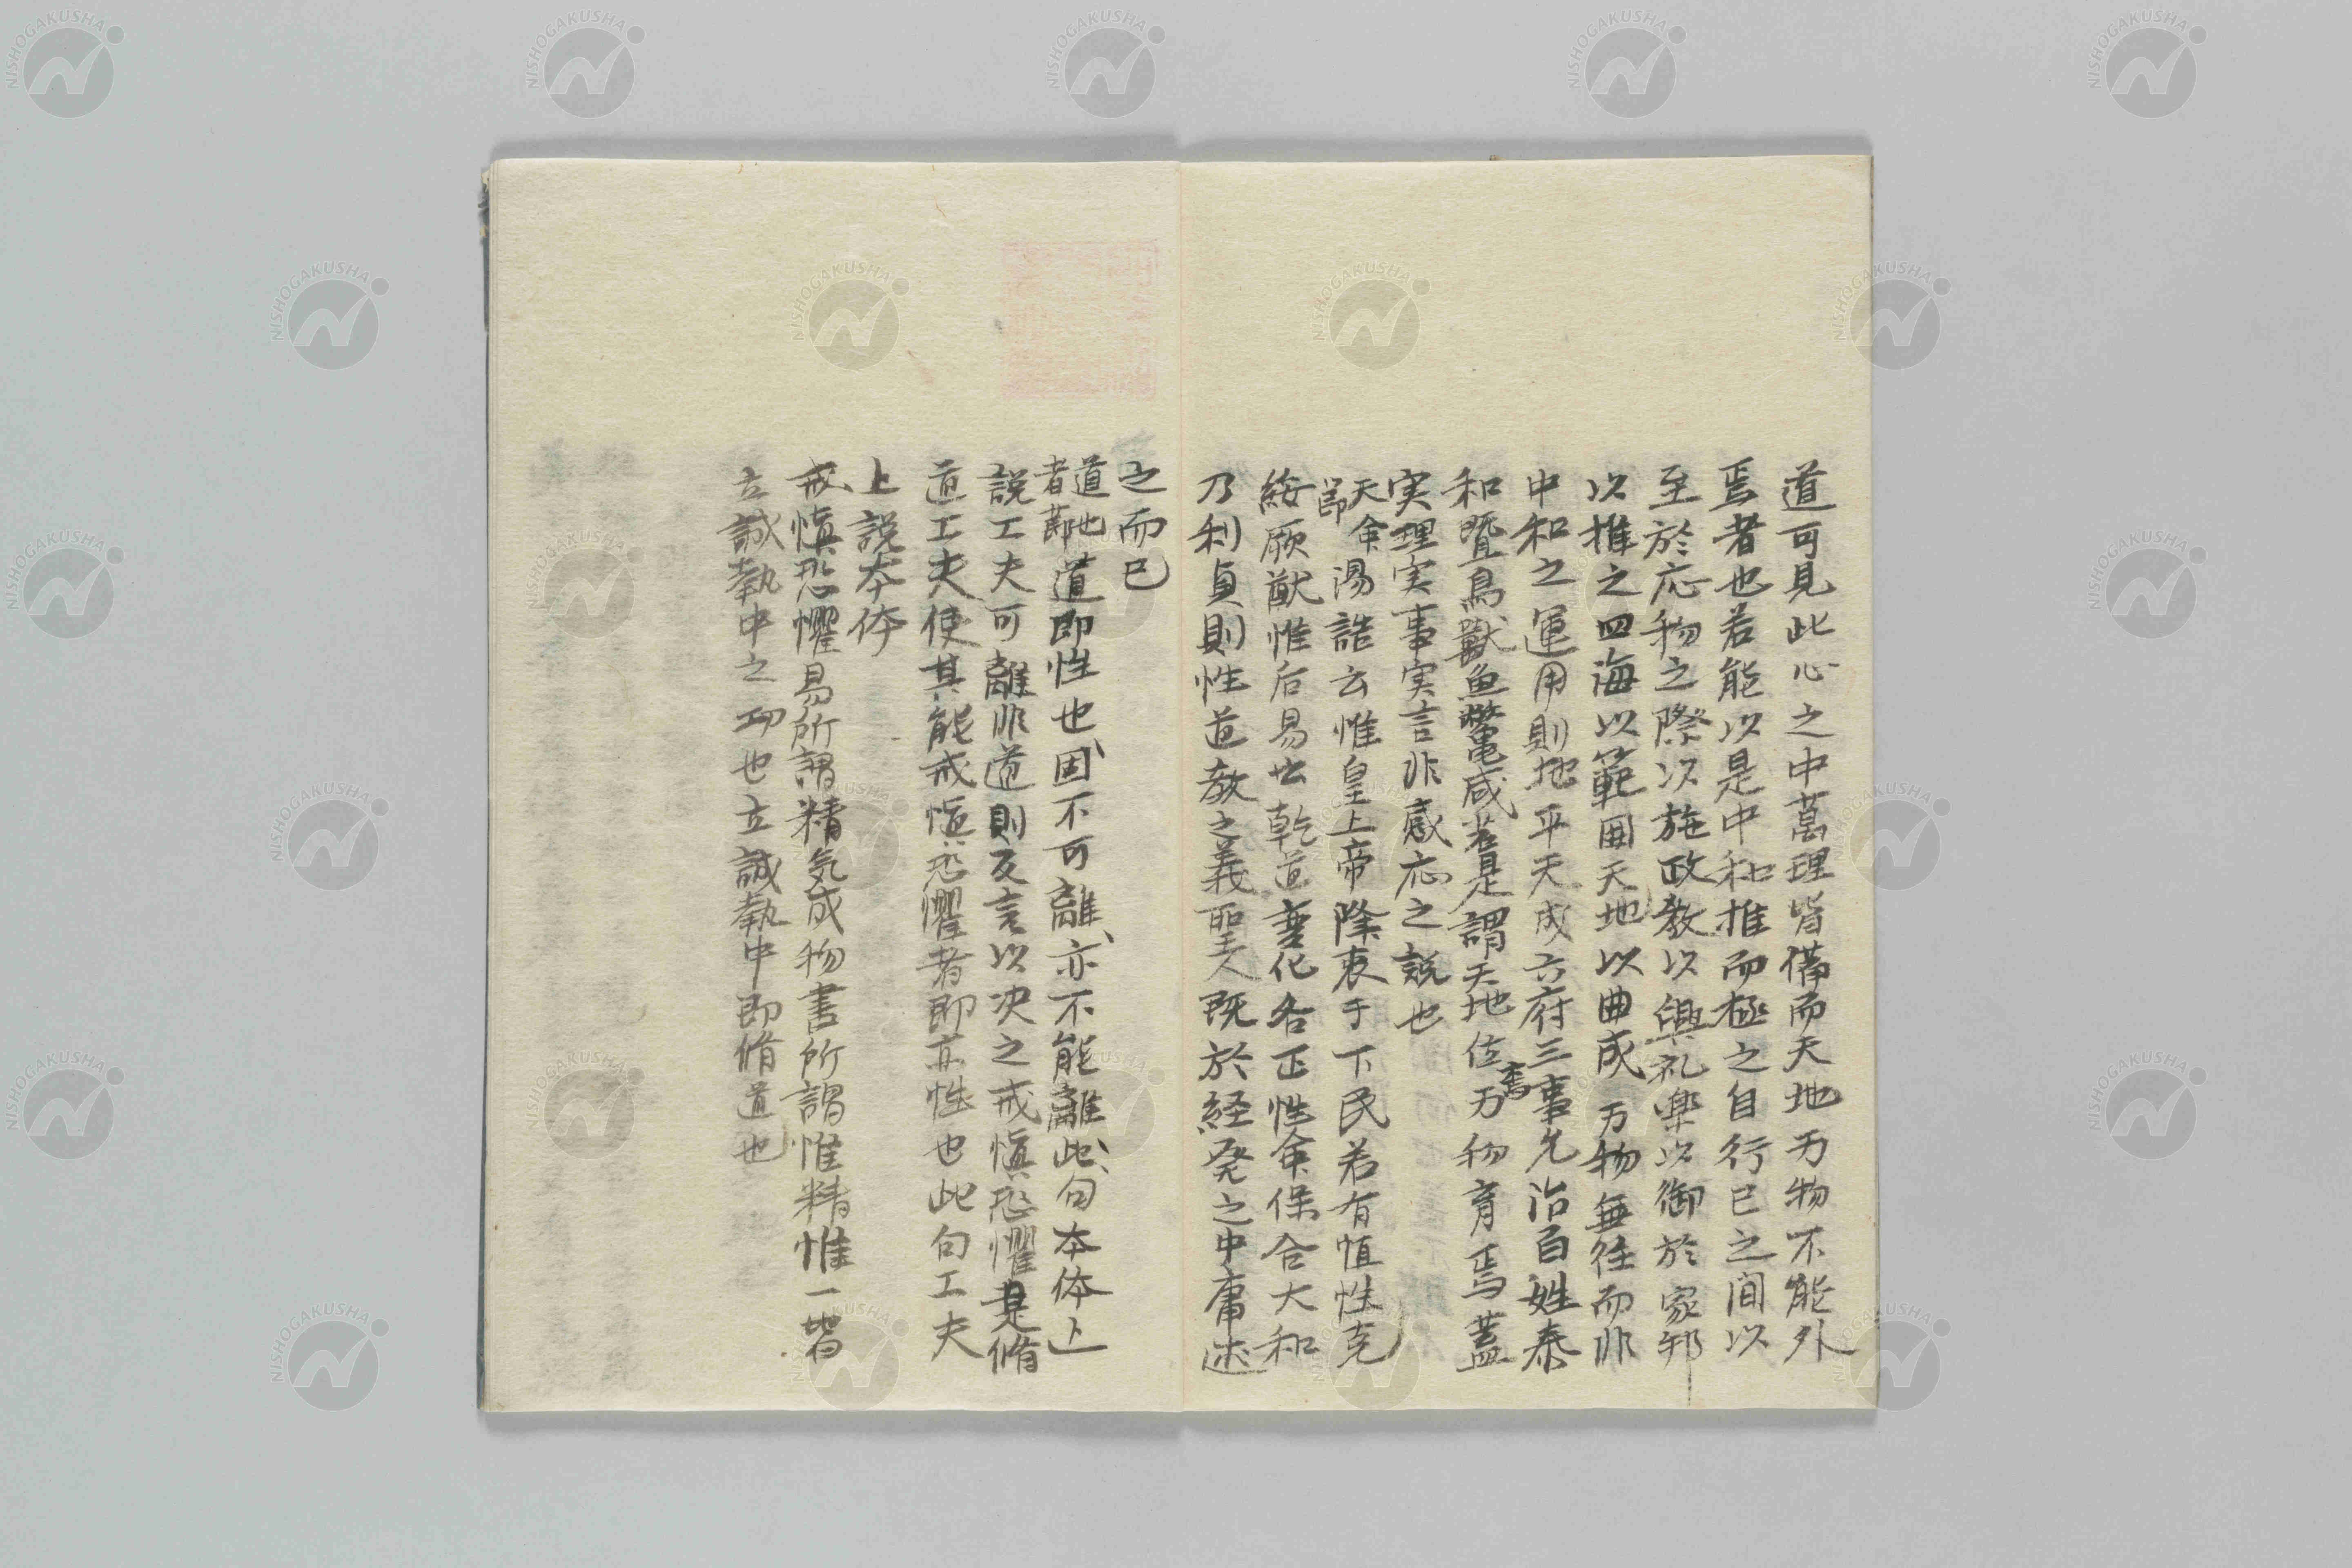 道可見此心之中萬理皆備而天地万物不能外
焉者也若能以是中和推而極之自行已之間以
至於応物之際以施政教以興礼楽以御於家邦
以推之四海以範囲天地以曲成万物無往而非
中和之運用則地平天成六府三事允治百姓泰
和曁鳥獣魚鼈咸若是謂天地位焉万物育焉蓋
実理実事実言非感応之説也
天命節湯誥云惟皇上帝降衷于下民若有恒性克
綏厥猷惟后易云乾道変化各正性命保合大和
乃利貞則性道教之義聖人既於経発之中庸述
之而已
道也者節道即性也固不可離亦不能離此句本体上
説工夫可離非道則反言以决之戒慎恐懼是脩
道工夫使其能戒慎恐懼者即亦性也此句工夫
上説本体
戒慎恐懼易所謂精気成物書所謂惟精惟一皆
立誠執中之功也立誠執中即脩道也
NISHOGAKUSHA